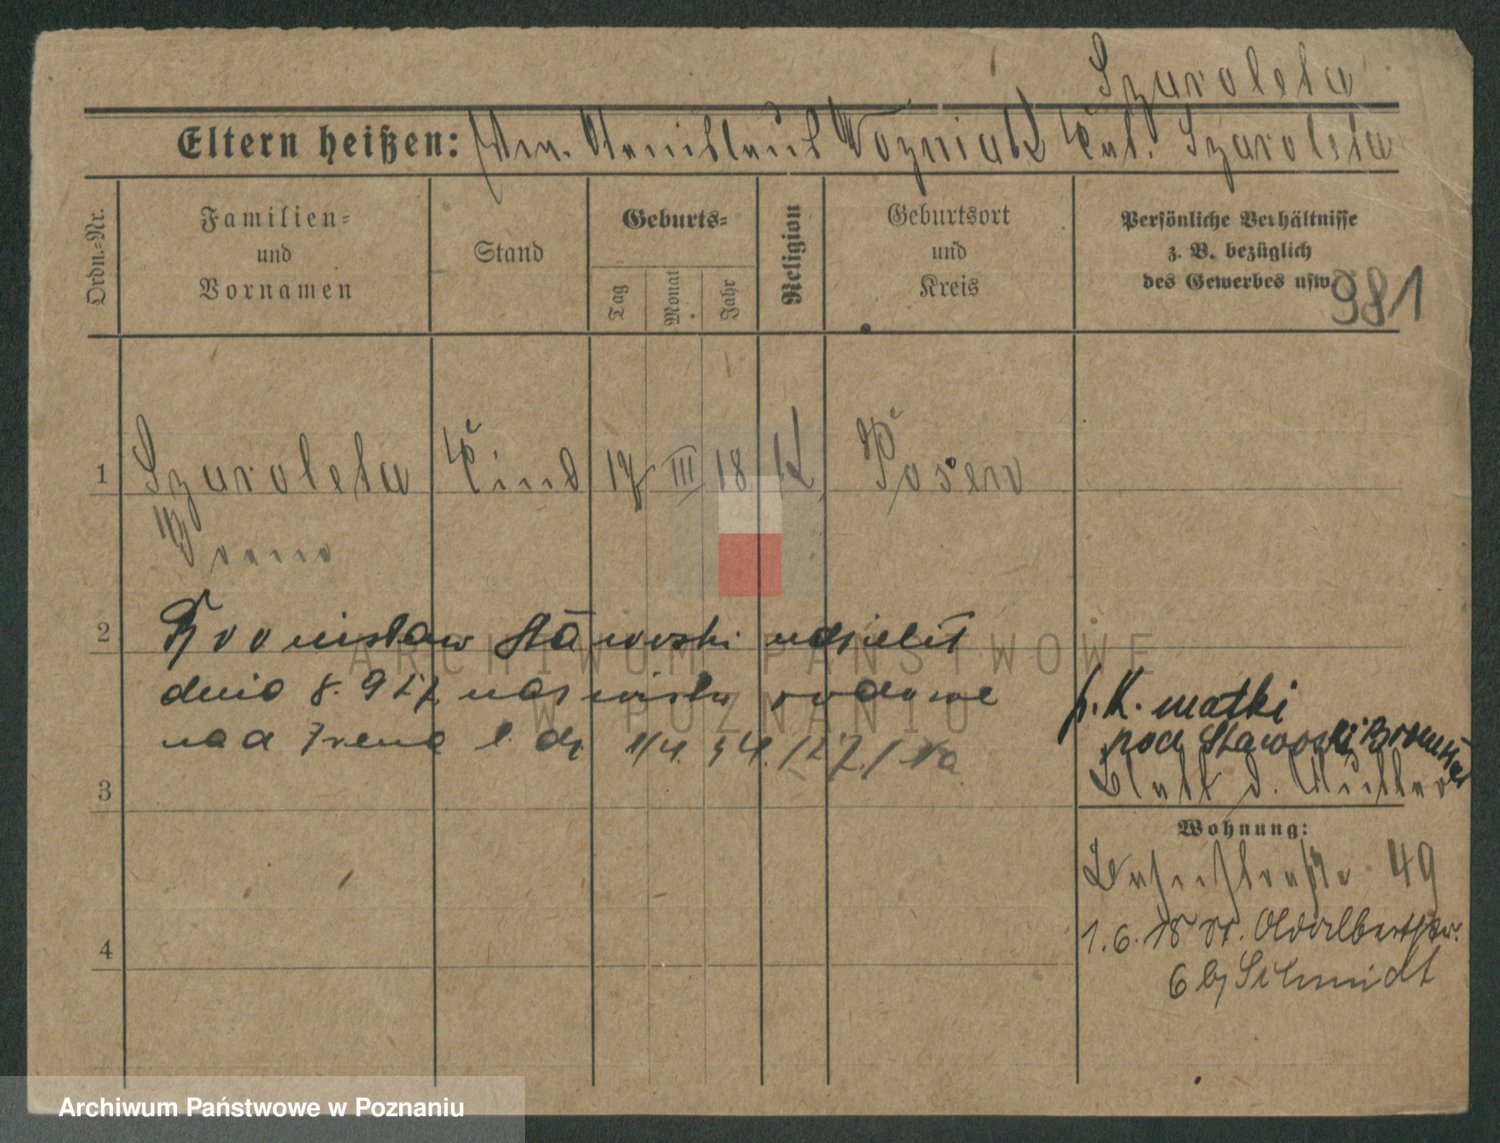 Szaroleta
Eltern heißen: Stanislaus Wozniak Kat. Szaroleta
Ordn.-Nr.
Familien-
und
Vornamen
Stand
Geburts-
Tag
Monat
Jahr
Religion
Geburtsort
und
Kreis
Persönliche Verhältnisse
z. B. bezüglich
des Gewerbes usw.
981
1 Szaroleta Kind 17 III 18 K Posen
2 Bronisław Stawoski udzielił
dnia 8.9 27 nazwiska rodowe
nad Irena l. dz
3
p. K. matki
pod Stawoski Bronisław
Blatt d. Mutter
Wohnung:
49
4
1.6.18 St. Adalbertstr.
6 b/ Schmidt
ARCHIWUM PAŃSTWOWE
W POZNANIU
Archiwum Państwowe w Poznaniu